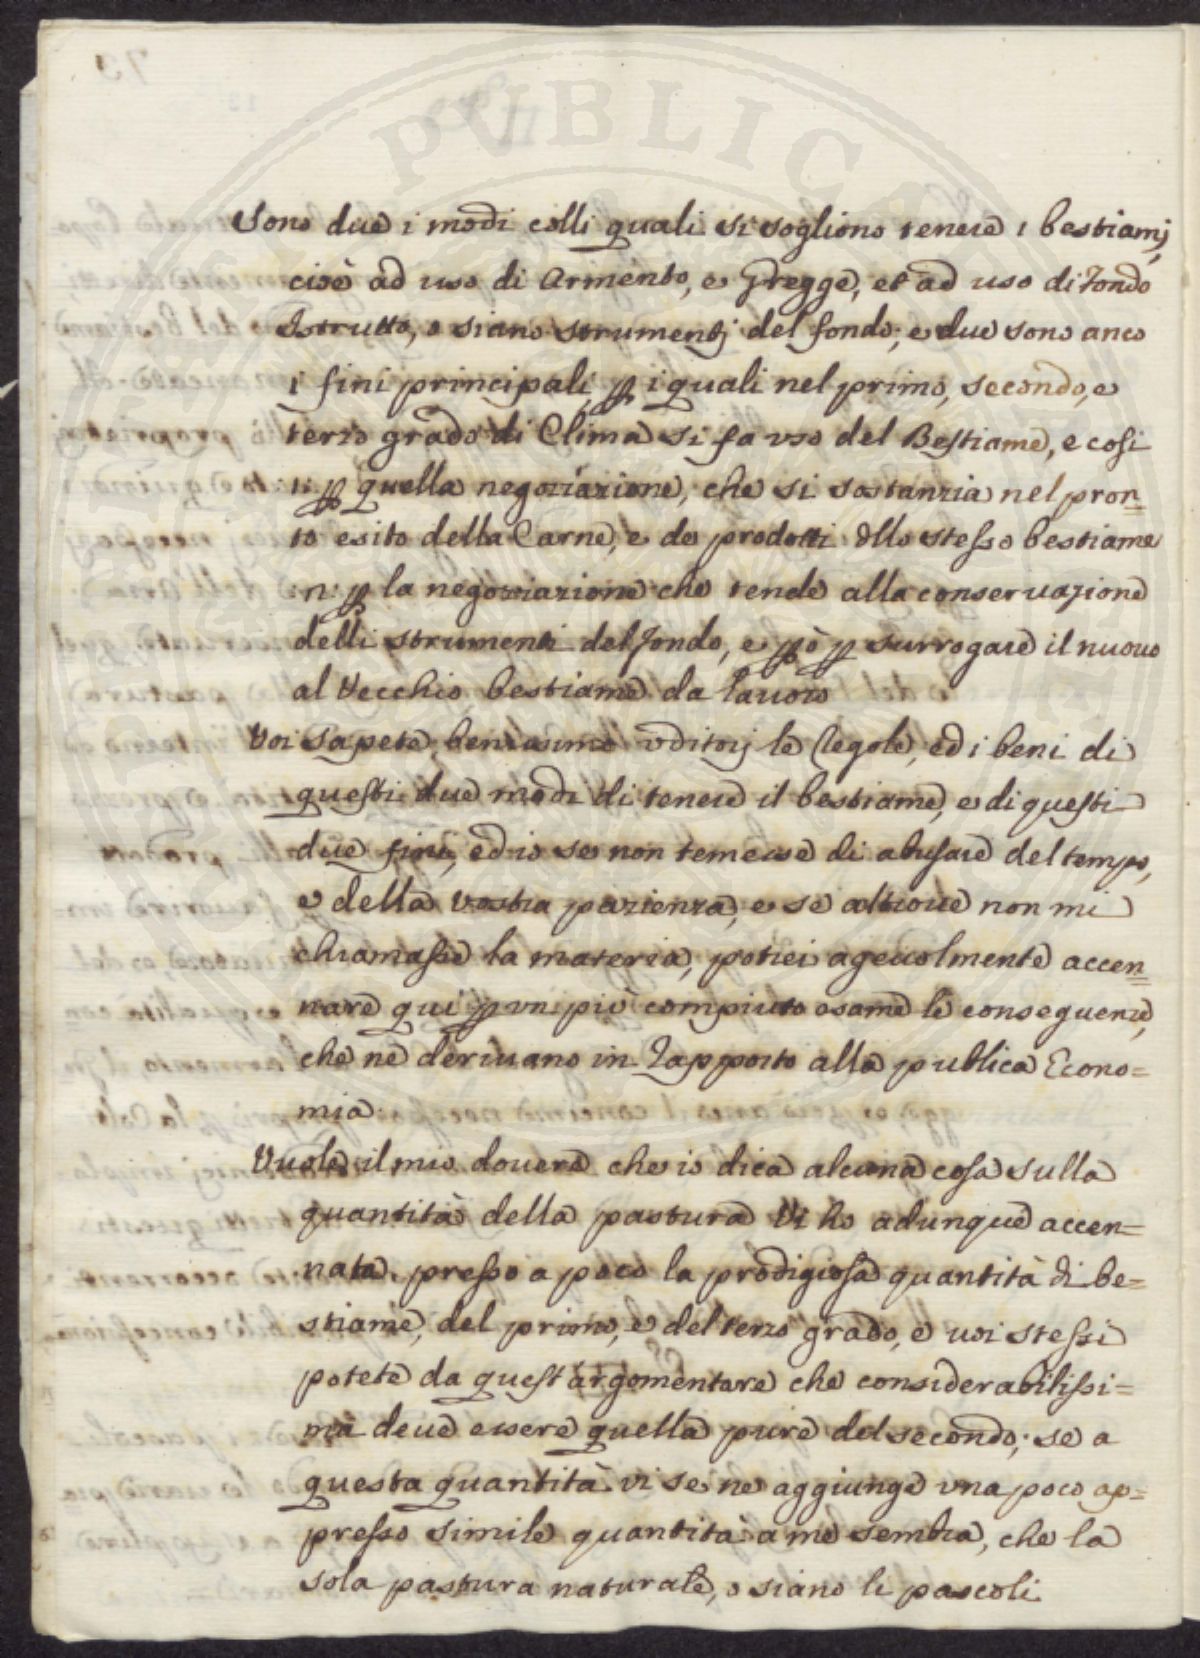 Sono due i modi colli quali si sogliono tenere i bestiamj,
cioè ad uso di Armento, e Gregge, et ad uso di Fondo
Istrutto, o siano strumentj del fondo; e due sono anco
i fini principali, ꝑ i quali nel primo, secondo, e
terzo grado di Clima si fa uso del Bestiame, e cosi
1: ꝑ quella negoziazione, che si sostanzia nel pron=
to esito della Carne, e de prodotti dllo stesso bestiame
:n: ꝑ la negoziazione che tende alla conservazione
delli strumenti del fondo, e ꝑò ꝑ surrogare il nuovo
al Vecchio bestiame da Lavoro
Voi sapete benissimo Vditorj le Regole, ed i beni di
questi due modi di tenere il bestiame, e di questi
due fini, ed io se non temessi di abusare del tempo,
e della vostra pazienza, e se altrove non mi
chiamasse la materia, potrei agevolmente accen=
nare qui ꝑ un più compiuto esame le conseguenze,
che ne derivano in Rapporto alla publica Econo=
mia.
Vuole il mio dovere che io dica alcuna cosa sulla
quantità della pastura Vi ho adunque accen=
nata presso a poco la prodigiosa quantità di be=
stiame, del primo, e del terzo grado, e voi stessi
potete da quest argomentare che considerabilissi=
ma deve essere quella pure del secondo; se a
questa quantità vi se ne aggiunge una poco ap=
presso simile quantità a me sembra, che la
sola pastura naturale, o siano li pascoli
PUBLIC